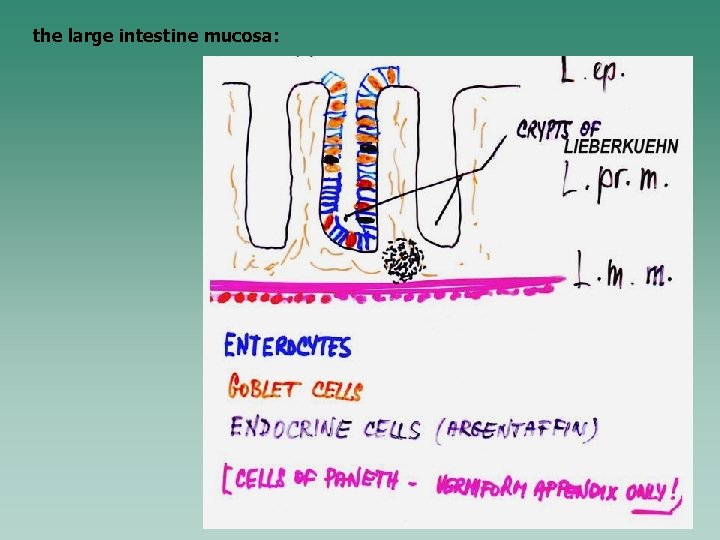 the large intestine mucosa:
L. ep.
CRYPTS OF
LIEBERKUEHN
L. pr. m.
L. m. m.
ENTEROCYTES
GOBLET CELLS
ENDOCRINE CELLS (ARGENTAFFIN)
[CELLS OF PANETH - VERMIFORM APPENDIX ONLY!